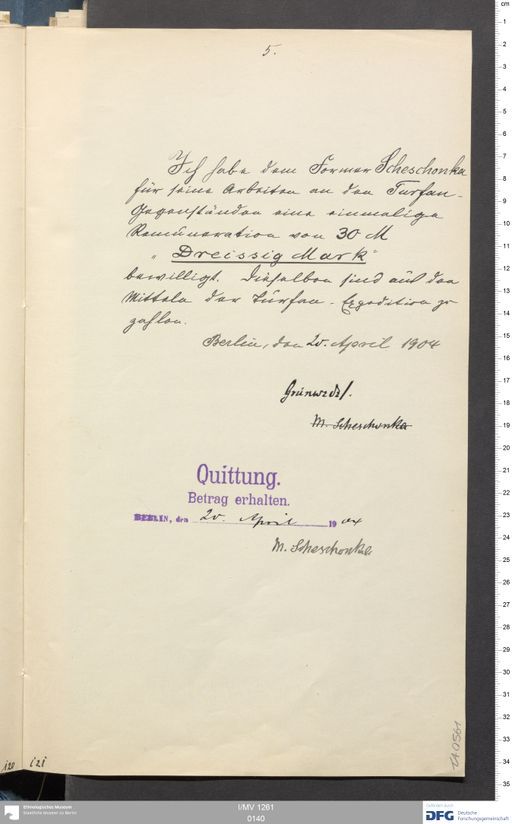 5.
Ich habe dem Former Scheschonka
für seine Arbeiten an den Turfan-
Gegenständen eine einmalige
Remuneration von 30 M
„Dreissig Mark“
bewilligt. Dieselben sind aus den
Mitteln der Turfan-Expedition zu
zahlen.
Berlin, den 20. April 1904
Grünwedel.
M. Scheschonka
Quittung.
Betrag erhalten.
BERLIN, den 20. April 1904
M. Scheschonka
120 121
1A0561
Ethnologisches Museum
Staatliche Museen zu Berlin
I/MV 1261
0140
DFG Deutsche
Forschungsgemeinschaft
cm
1
2
3
4
5
6
7
8
9
10
11
12
13
14
15
16
17
18
19
20
21
22
23
24
25
26
27
28
29
30
31
32
33
34
35